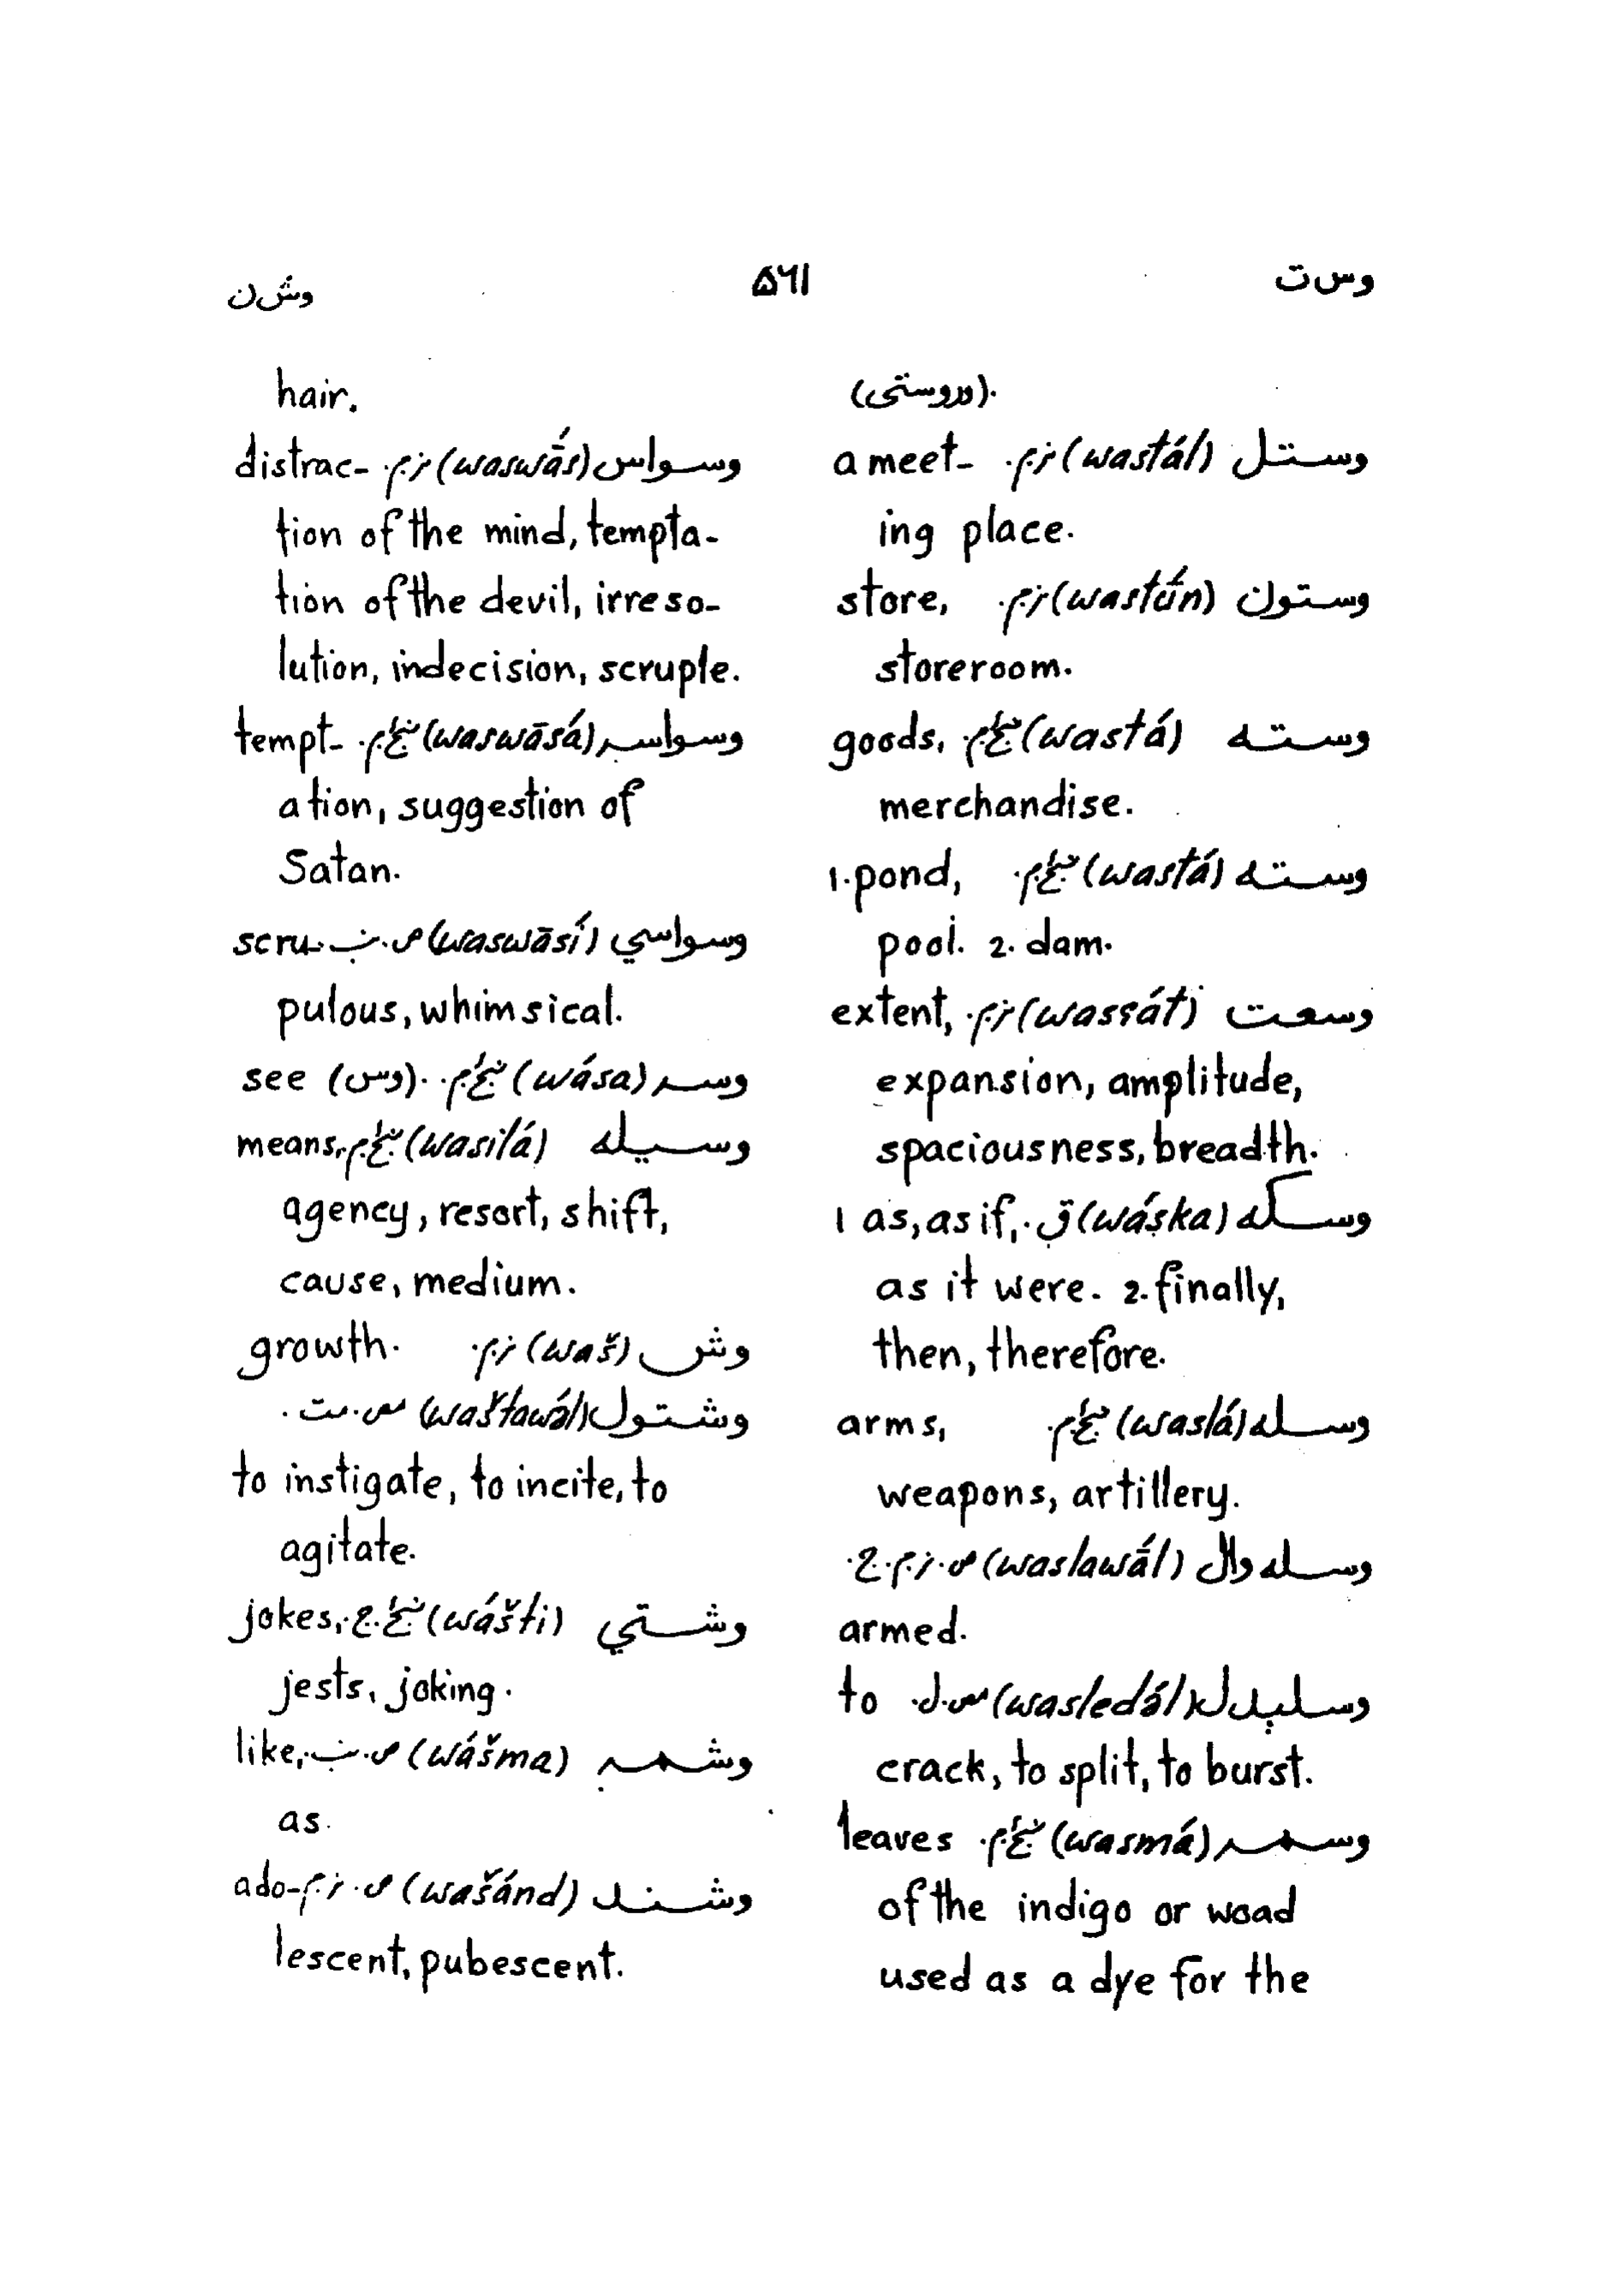 وس ت ۵۶۱ وش ن
(وروستی).
وستل (wastál) ن.م. a meet-
ing place.
وستون (wastún) ن.م. store,
storeroom.
وسته (wastá) goods,
merchandise.
وسته (wastá) 1. pond,
pool. 2. dam.
وسعت (wasʕát) ن.م. extent,
expansion, amplitude,
spaciousness, breadth.
وسکه (wáska) ق. 1 as, as if,
as it were. 2. finally,
then, therefore.
وسله (waslá) arms,
weapons, artillery.
وسله وال (waslawāl) ص.ن.م.ج.
armed.
وسلېدل (wasledə́l) س.ل. to
crack, to split, to burst.
وسمه (wasmá) leaves
of the indigo or woad
used as a dye for the
hair.
وسواس (waswā́s) ن.م. distrac-
tion of the mind, tempta-
tion of the devil, irreso-
lution, indecision, scruple.
وسواسه (waswāsá) tempt-
ation, suggestion of
Satan.
وسواسي (waswāsí) ص.ن. scru-
pulous, whimsical.
وسه (wása) see (وس).
وسیله (wasilá) means,
agency, resort, shift,
cause, medium.
وش (waš) ن.م. growth.
وشتول (waštawə́l) س.مت.
to instigate, to incite, to
agitate.
وشتي (wášti) jokes,
jests, joking.
وشمه (wášma) ص.ن. like,
as.
وشند (wašánd) ص.ن.م. ado-
lescent, pubescent.